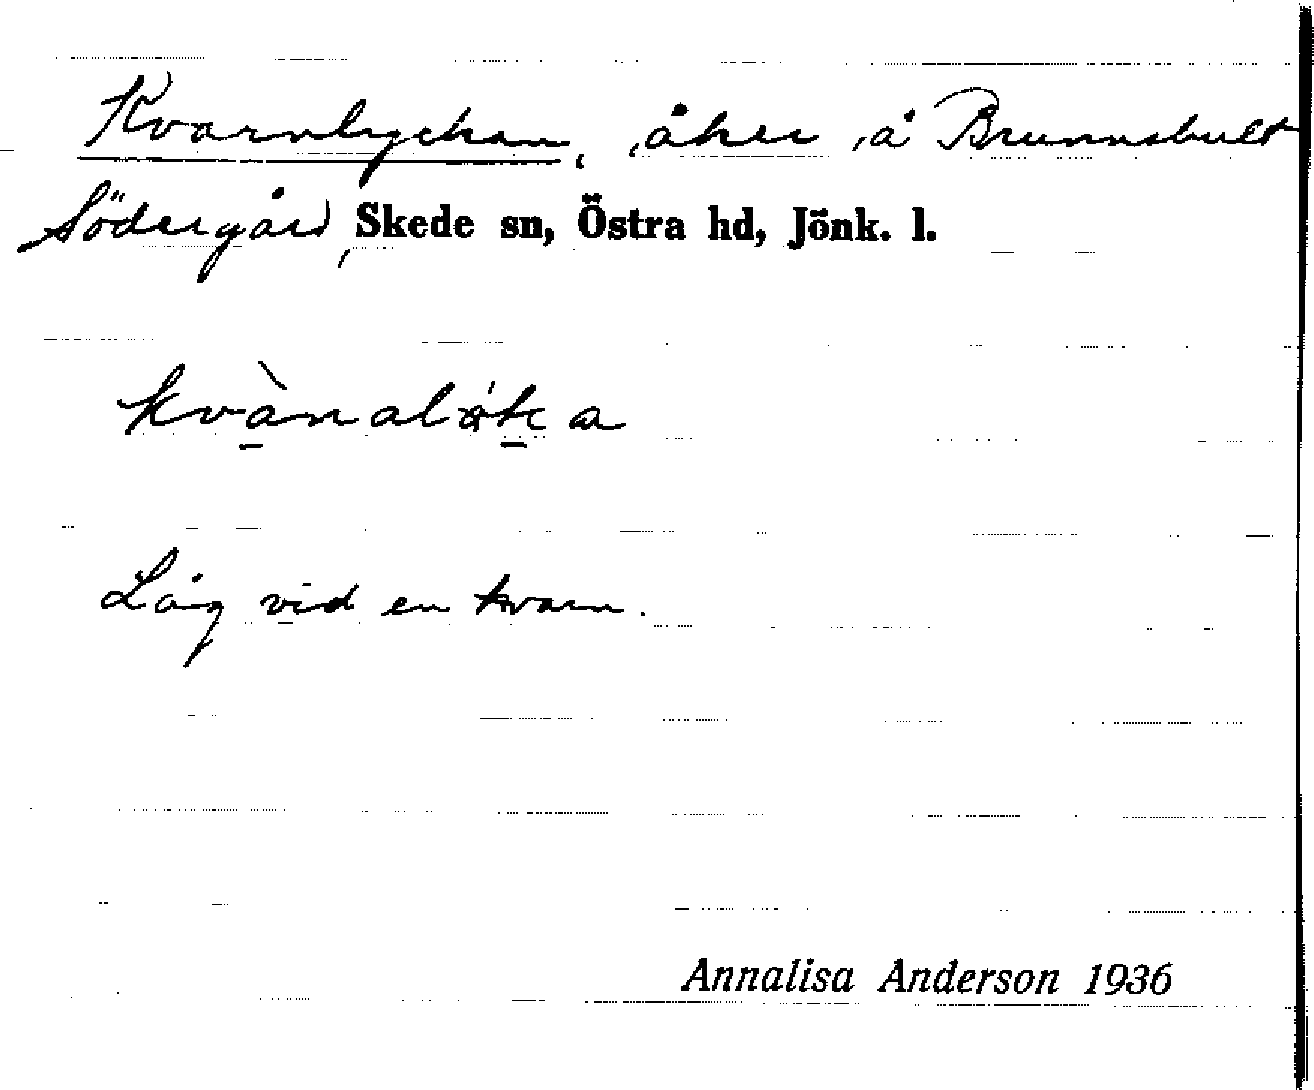 Kvarnlyckan, åker å Brunnsbult
Södergård, Skede sn, Östra hd, Jönk. l.
Låg vid en kvarn.
Annalisa Anderson 1936